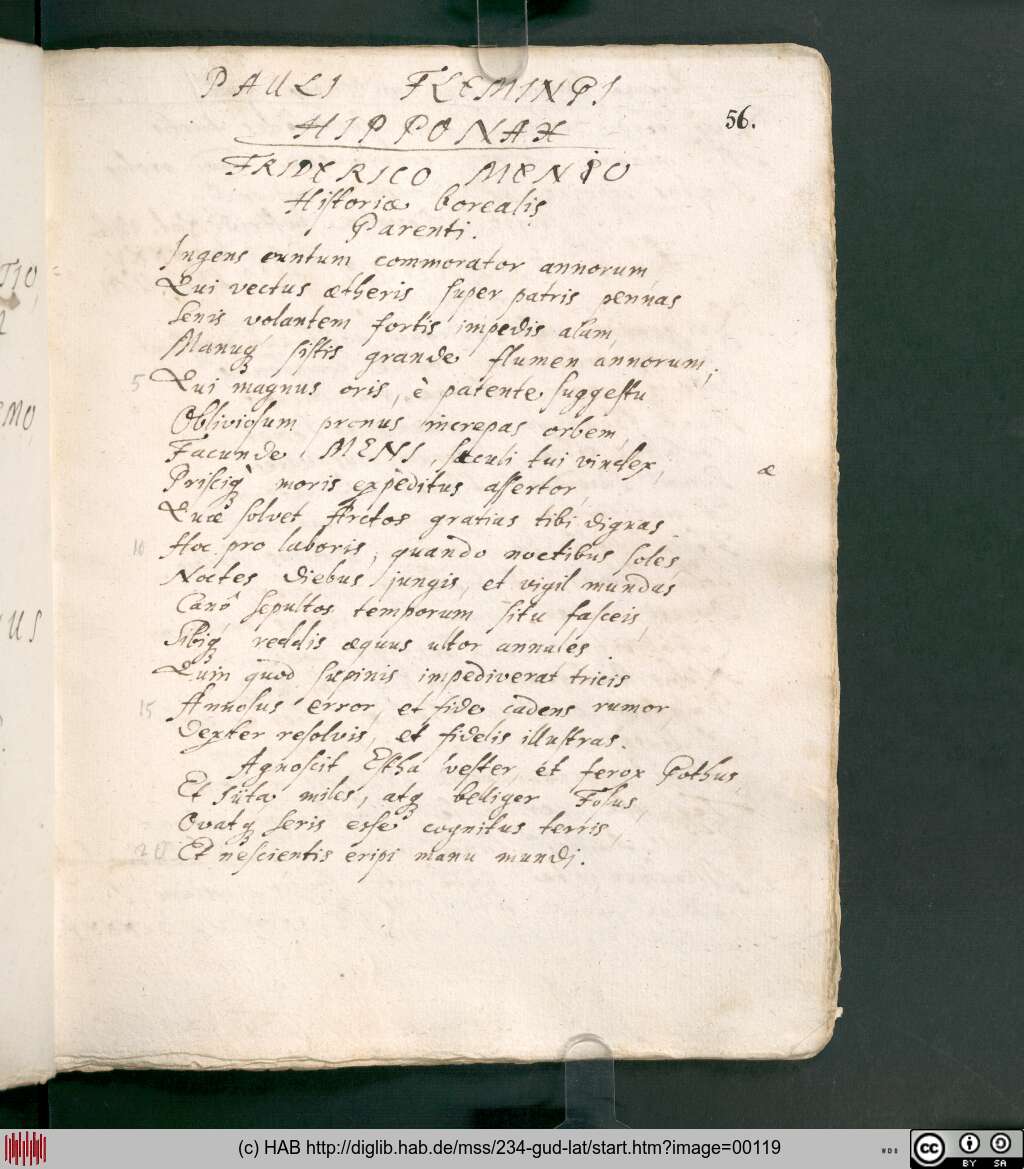 PAULI FLEMINGI
HIPPONAX
56.
FRIDERICO MENIO
Historiæ borealis
Parenti.
Ingens euntum commorator annorum,
Qui vectus ætheris super patris pennas
Senis volantem fortis impedis alam,
Manuq; sistis grande flumen annorum;
5 Qui magnus oris, è patente suggestu
Obliviosum pronus increpas orbem,
Facunde MENI, sæculi tui vindex, æ
Prisciq; moris expeditus assertor,
Quæ solvet Arctos gratias tibi dignas
10 Hoc pro laboris, quando noctibus soles
Noctes diebus jungis, et vigil mundas
Canô sepultos temporum situ fasceis,
Sibiq; reddis æquus ultor annales.
Quin quod supinis impediverat tricis
15 Annosus error, et fide cadens rumor
Dexter resolvis, et fidelis illustras.
Agnoscit Estha vester, et ferox Gothus,
Et Jüta miles, atq; belliger Folus,
Ovatq; seris esse cognitus terris,
20 Et nescientis eripi manu mundi.
TIO,
EMO,
US
(c) HAB http://diglib.hab.de/mss/234-gud-lat/start.htm?image=00119
WDB
cc BY SA